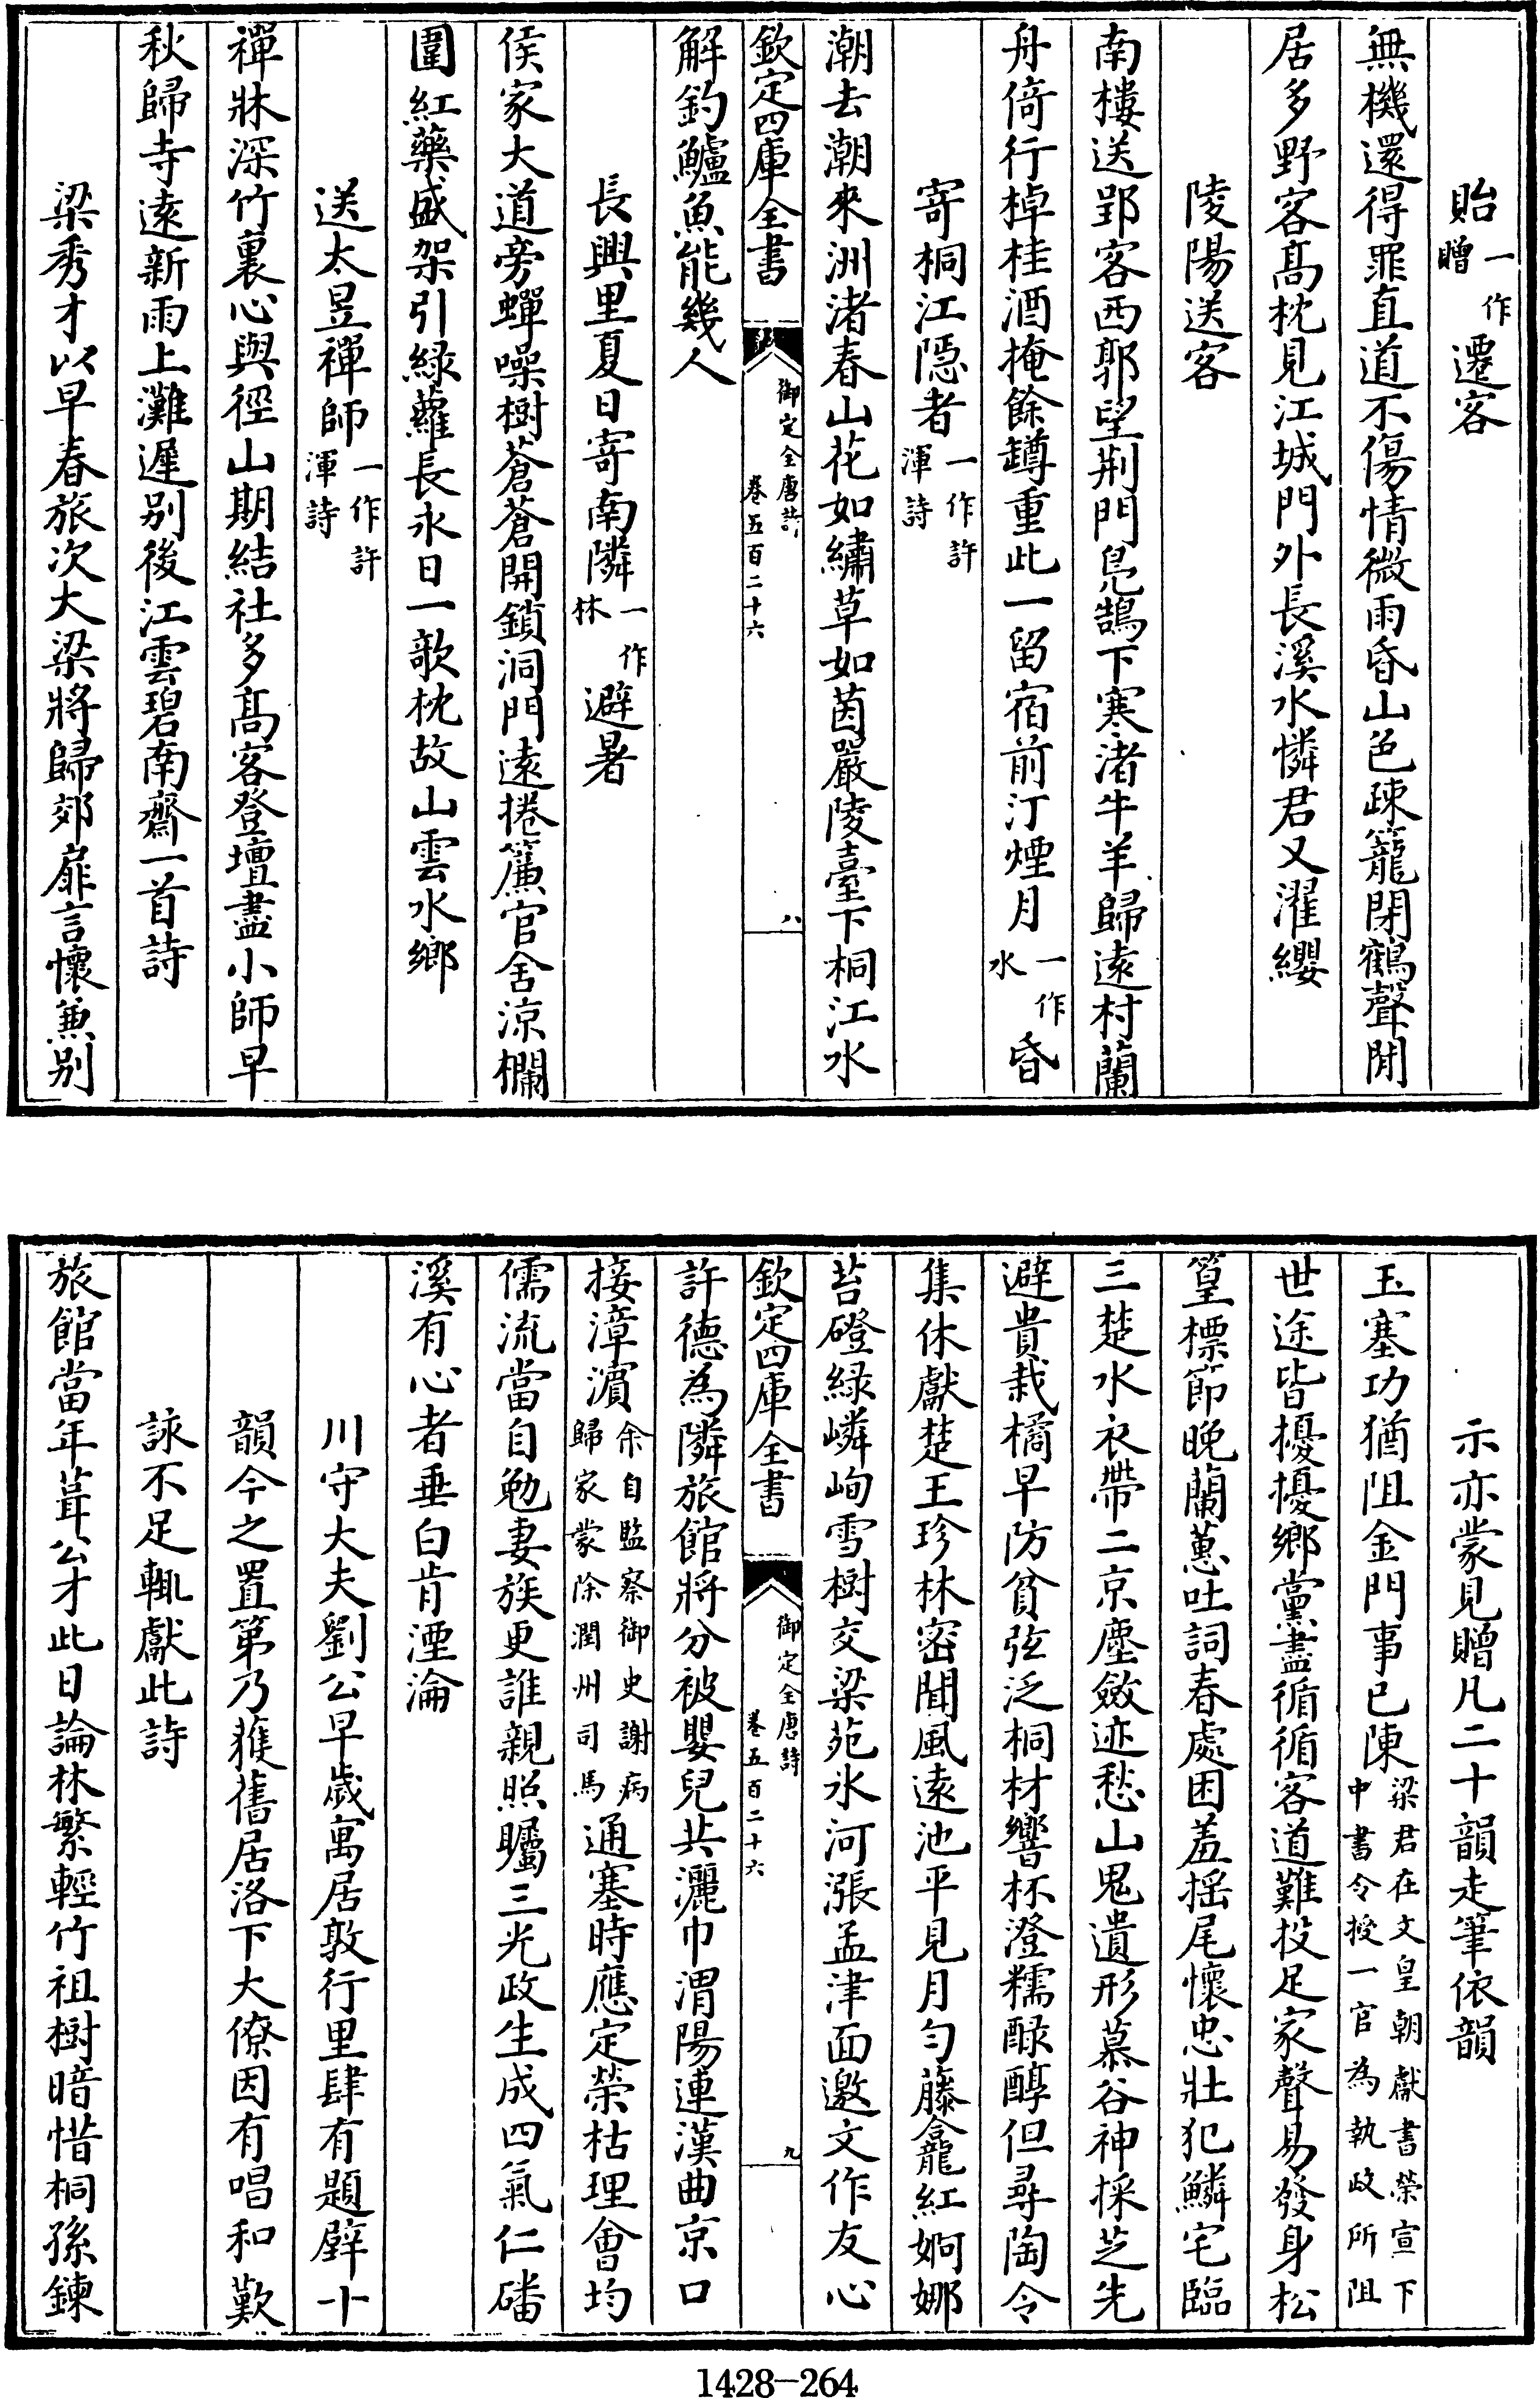 貽一作贈遷客
無機還得罪直道不傷情微雨昏山色疎籠閉鶴聲閒
居多野客髙枕見江城門外長溪水憐君又濯纓
陵陽送客
南樓送郢客西郭望荆門鳧鵠下寒渚牛羊歸遠村蘭
舟倚行棹桂酒掩餘罇重此一留宿前汀煙月一作水昏
寄桐江隱者一作許渾詩
潮去潮來洲渚春山花如繡草如茵嚴陵臺下桐江水
欽定四庫全書
御定全唐詩
卷五百二十六
八
解釣鱸魚能幾人
長興里夏日寄南隣一作林避暑
侯家大道旁蟬噪樹蒼蒼開鎖洞門遠捲簾官舍涼欄
圍紅藥盛架引綠蘿長永日一欹枕故山雲水鄉
送太昱禪師一作許渾詩
禪牀深竹裏心與徑山期結社多髙客登壇盡小師早
秋歸寺遠新雨上灘遲别後江雲碧南齋一首詩
梁秀才以早春旅次大梁將歸郊扉言懷兼别
示亦蒙見贈凡二十韻走筆依韻
玉塞功猶阻金門事已陳梁君在文皇朝獻書榮宣下中書令授一官為執政所阻
世途皆擾擾鄉黨盡循循客道難投足家聲易發身松
篁標節晚蘭蕙吐詞春處困羞摇尾懷忠壯犯鱗宅臨
三楚水衣帶二京塵斂迹愁山鬼遺形慕谷神採芝先
避貴栽橘早防貧弦泛桐材響杯澄糯醁醇但尋陶令
集休獻楚王珍林密聞風遠池平見月勻藤龕紅婀娜
苔磴綠嶙峋雪樹交梁苑氷河漲孟津面邀文作友心
欽定四庫全書
御定全唐詩
卷五百二十六
九
許德為隣旅館將分被嬰兒共灑巾渭陽連漢曲京口
接漳濵余自監察御史謝病歸家蒙除潤州司馬通塞時應定榮枯理會均
儒流當自勉妻族更誰親照矚三光政生成四氣仁磻
溪有心者垂白肯湮淪
川守大夫劉公早歲寓居敦行里肆有題壁十
韻今之置第乃獲舊居洛下大僚因有唱和歎
詠不足輒獻此詩
旅館當年葺公才此日論林繁輕竹祖樹暗惜桐孫鍊
1428-264